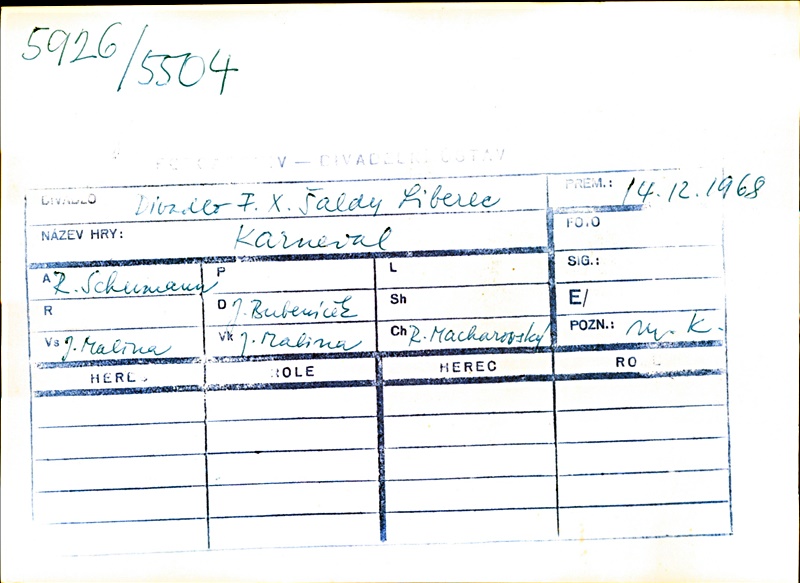 5926/5504
DIVADELNÍ ÚSTAV
DIVADLO Divadlo F. X. Šaldy Liberec PREM.: 14.12.1968
NÁZEV HRY: Karneval FOTO
A R. Schumann P L SIG.:
R D J. Bubeníček Sh E/
Vs J. Malina Vk J. Malina Ch R. Macharovský POZN.: K.
HEREC ROLE HEREC ROLE